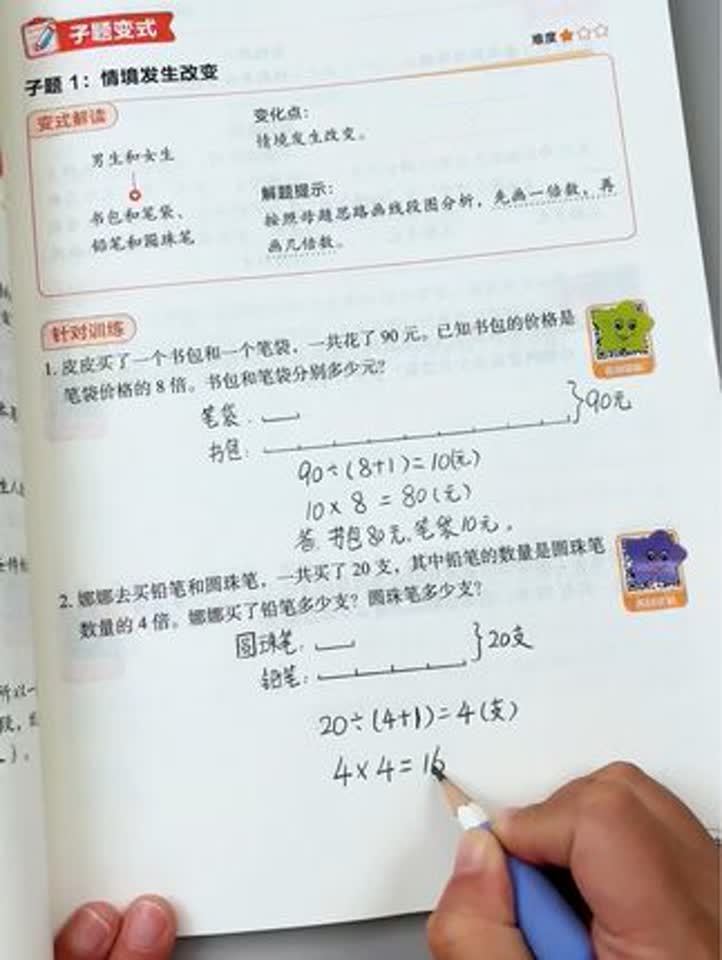 子题变式
难度
子题 1：情境发生改变
变式解读
男生和女生
书包和笔袋、
铅笔和圆珠笔
变化点：
情境发生改变。
解题提示：
按照母题思路画线段图分析，先画一倍数，再
画几倍数。
针对训练
1. 皮皮买了一个书包和一个笔袋，一共花了 90 元。已知书包的价格是
笔袋价格的 8 倍。书包和笔袋分别多少元？
笔袋：
书包：
}90元
90÷(8+1)=10(元)
10×8=80(元)
答：书包80元，笔袋10元。
2. 娜娜去买铅笔和圆珠笔，一共买了 20 支，其中铅笔的数量是圆珠笔
数量的 4 倍。娜娜买了铅笔多少支？圆珠笔多少支？
圆珠笔：
铅笔：
}20支
20÷(4+1)=4(支)
4×4=16